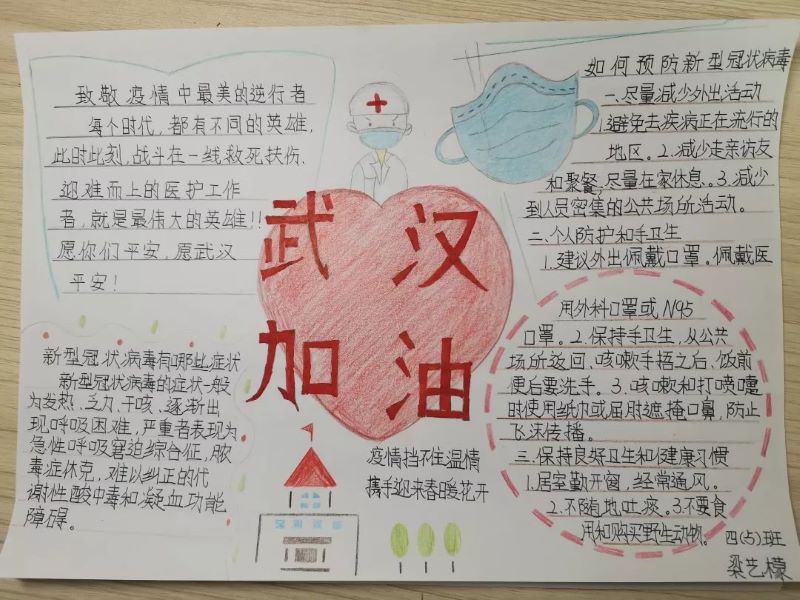 致敬疫情中最美的逆行者
每个时代，都有不同的英雄，
此时此刻，战斗在一线救死扶伤、
迎难而上的医护工作
者，就是最伟大的英雄!!
愿你们平安，愿武汉
平安！
武汉
加油
如何预防新型冠状病毒
一、尽量减少外出活动
1.避免去疾病正在流行的
地区。2.减少走亲访友
和聚餐，尽量在家休息。3.减少
到人员密集的公共场所活动。
二、个人防护和手卫生
1.建议外出佩戴口罩。佩戴医
用外科口罩或N95
口罩。2.保持手卫生，从公共
场所返回、咳嗽手捂之后、饭前
便后要洗手。3.咳嗽和打喷嚏
时使用纸巾或屈肘遮掩口鼻，防止
飞沫传播。
三、保持良好卫生和健康习惯
1.居室勤开窗，经常通风。
2.不随地吐痰。3.不要食
用和购买野生动物。
新型冠状病毒有哪些症状
新型冠状病毒的症状一般
为发热、乏力、干咳、逐渐出
现呼吸困难，严重者表现为
急性呼吸窘迫综合征，脓
毒症休克，难以纠正的代
谢性酸中毒和凝血功能
障碍。
疫情挡不住温情
携手迎来春暖花开
四(5)班
梁艺檬